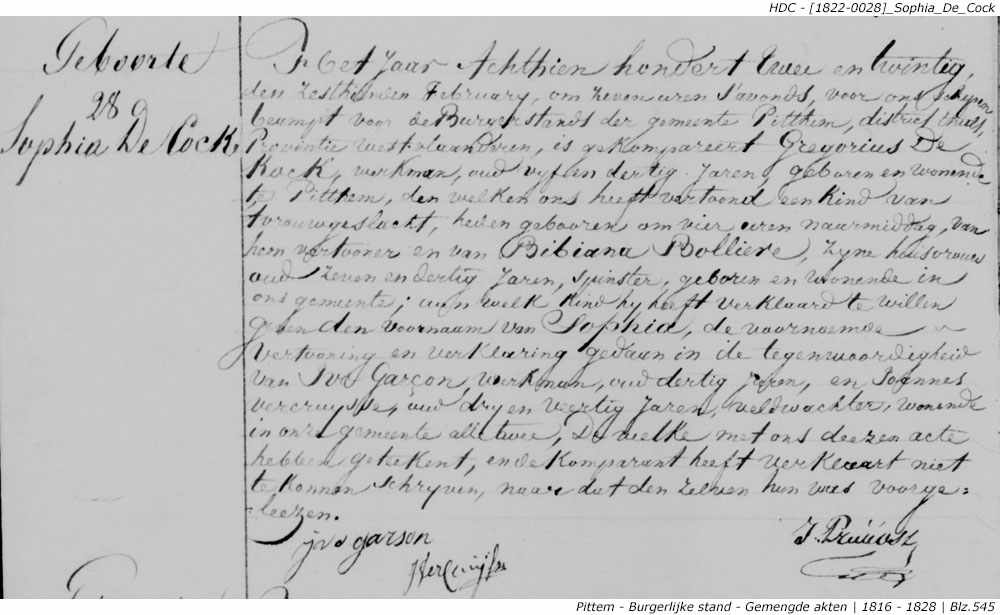 HDC - [1822-0028]_Sophia_De_Cock
Geboorte
28
Sophia De Cock
In het Jaar Achthien hondert twee en twintig,
den zesthienden February, om zeven uren s'avonds, voor ons schepen
beampt voor de Burgerstands der gemeente Pitthem, district thielt,
Provintie westvlaanderen, is gekompareert Gregorius De
Kock, werkman, oud vyf en dertig Jaren, geboren en wonende
te Pitthem, den welken ons heeft vertoond een kind van
tvrouwgeslacht, heden gebooren om vier uren naarmiddag, van
hem vertooner en van Bibiana Bolliere, zyne huisvrouw
oud zeven en dertig Jaren, spinster, geboren en wonende in
ons gemeente; aan welk kind hy heeft verklaard te willen
geven den voornaam van Sophia, de voornoemde
vertooning en verklaering gedaan in de tegenwoordigheid
van Ivo Garçon, werkman, oud dertig Jaren, en Joannes
vercruysse, oud dry en veertig Jaren, veldwachter, wonende
in onze gemeente alle twee, De welke met ons deezen acte
hebben geteekent, en de komparant heeft verklaart niet
te konnen schryven, naar dat den zelven hun was voorge=
leezen.
ijvo garson
J. Prüvost
Pittem - Burgerlijke stand - Gemengde akten | 1816 - 1828 | Blz.545